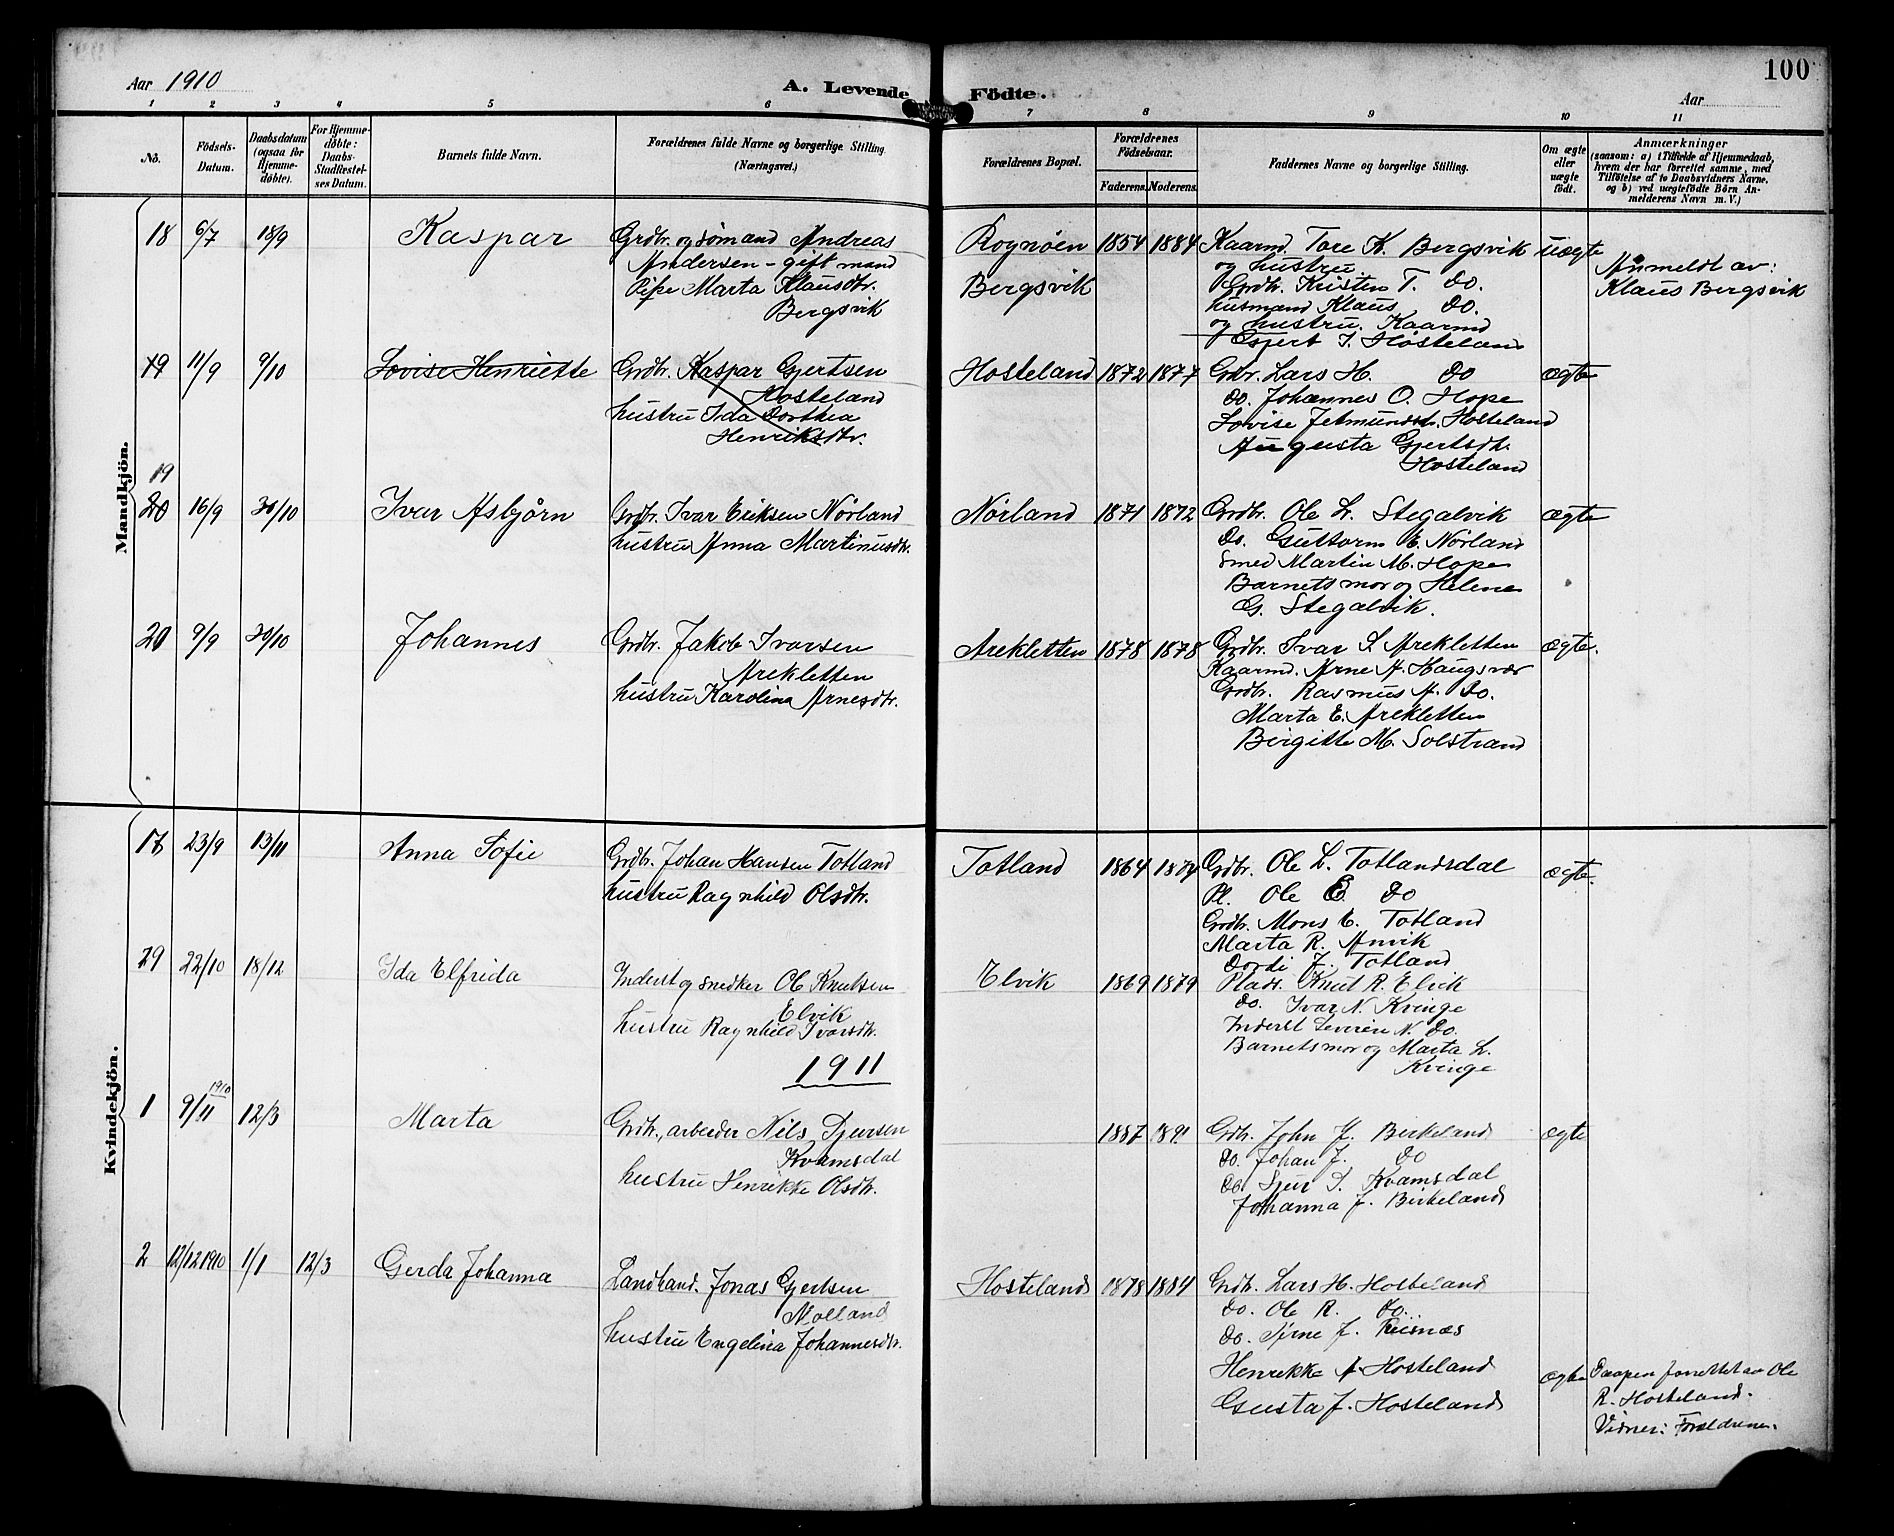 100
Aar 1910
A. Levende Födte.
Aar
1 2 3 4 5 6 7 8 9 10 11
No.
Födsels-Datum.
Daabsdatum (ogsaa for Hjemme-döbte).
For Hjemme-döbte: Daabs-Stadfæstel-ses Datum.
Barnets fulde Navn.
Forældrenes fulde Navne og borgerlige Stilling (Næringsvei.)
Forældrenes Bopæl.
Forældrenes Födselsaar.
Faderens. Moderens.
Faddernes Navne og borgerlige Stilling.
Om ægte eller uægte födt.
Anmærkninger
(saasom: a) i Tilfælde af Hjemmedaab, hvem der har forrettet samme, med Tilföielse af to Daabsvidners Navne, og b) ved uægtefödte Börn An-melderens Navn m. V.)
Mandkjön.
18 6/7 18/9 Kaspar
Grdbr. og sømand Andreas
Andersen - gift mand
Pige Marta Klausdtr.
Bergsvik
Rognøen
Bergsvik
1854 1884
Kaarmd. Tore K. Bergsvik
og hustru
Grdbr. Kristen T. do.
husmand Klaus do.
og hustru. Kaarmd
J. Hosteland
uægte
Anmeldt av:
Klaus Bergsvik
19 11/9 9/10 Lovise Henriette
Grdbr. Kaspar Gjertsen
Hosteland
hustru Ida Dorthea
Henriksdtr.
Hosteland 1872 1877
Grdbr. Lars H. do
do. Johannes O. Hope
Lovise Jetmundsdtr. Hosteland
Augusta Gjertsdtr.
Hosteland
ægte
19
20 16/9 30/10 Ivar Asbjørn
Grdbr. Ivar Eriksen Nørland
hustru Anna Martinusdtr.
Nørland 1871 1872
Grdbr. Ole L. Stegalvik
do. Guttorm E. Nørland
Smed Martin M. Hope
Barnets mor og Helene
G. Stegalvik.
ægte
20 9/9 30/10 Johannes
Grdbr. Jakob Ivarsen
Arekletten
hustru Karolina Arnesdtr.
Arekletten 1878 1878
Grdbr. Ivar S. Arekletten
Kaarmd. Arne A. Haugsvær
Grdbr. Rasmus A. do.
Marta E. Arekletten
Birgitte M. Solstrand
ægte.
Kvindekjön.
17 23/9 13/11 Anna Sofie
Grdbr. Johan Hansen Totland
hustru Ragnhild Olsdtr.
Totland 1864
Grdbr. Ole L. Totlandsdal
Pl. Ole E do
Grdbr. Mons E. Totland
Marta R. Anvik
Dordi J. Totland
ægte.
29 22/10 18/12 Ida Elfrida
Inderst og snedker Ole Knutsen
Elvik
hustru Ragnhild Ivarsdtr.
Elvik 1869 1879
Plads. Knut R. Elvik
do. Ivar N. Kvinge
Inderst Severin N. do.
Barnets mor og Marta L.
Kvinge
1911
1 9/11 1910 12/3 Marta
Grdbr., arbeider Nils Sjursen
Kvamsdal
hustru Henrikke Olsdtr.
1887 1891
Grdbr. John J. Birkeland
do. Johan J. do
do. Sjur S. Kvamsdal
Johanna J. Birkeland
ægte
2 12/12 1910 1/1 12/3 Gerda Johanna
Landhand. Jonas Gjertsen
Molland
hustru Engelina Johannesdtr.
Hosteland 1878 1884
Grdbr. Lars H. Hosteland
do. Ole R. do.
do. Arne J. Risnæs
Henrikke A Hosteland
Gusta J. Hosteland
ægte
Daapen forrettet av Ole
R. Hosteland.
Vidner: Forældrene.